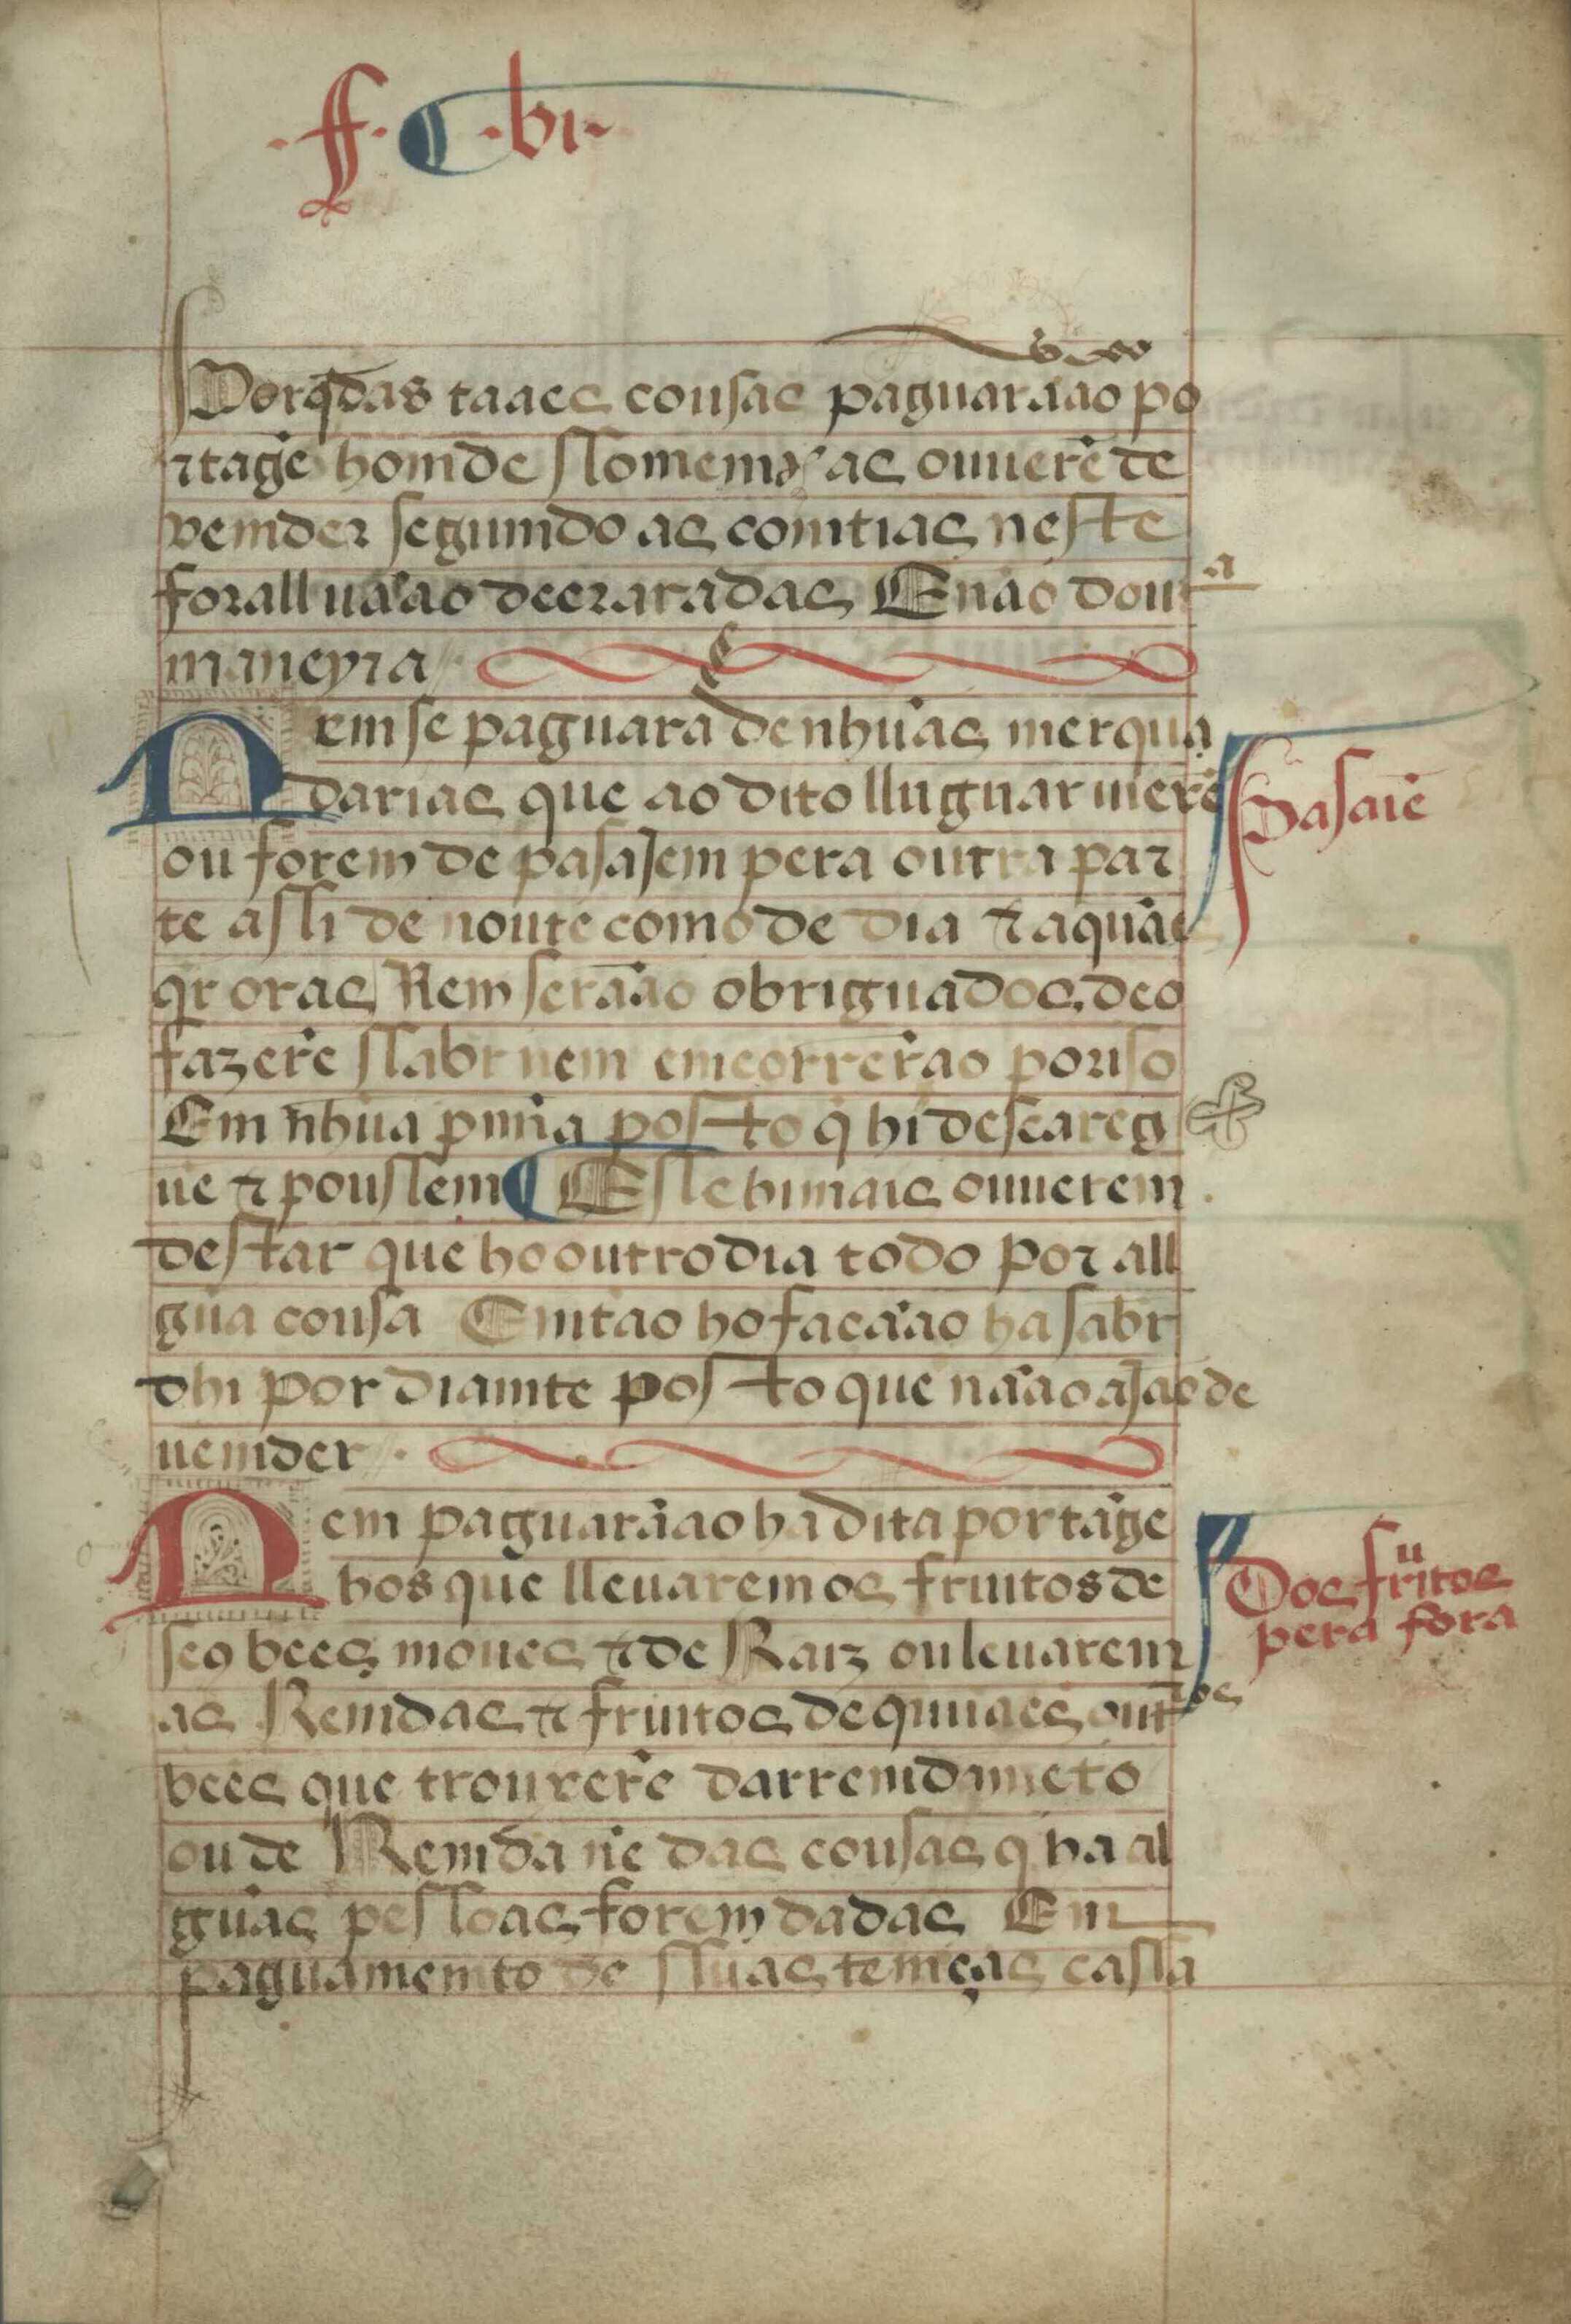 f. C bi
Porq̄ das taaes cousas paguarāao po
rtagē homde ssomemte as ouuerē de
vemder segumdo as comtias neste
forall uāao decraradas E nāo doutra
maneyra
Nem se paguara de nhūas merqua
darias que ao dito lluguar uierē
ou forem de pasajem pera outra par
te assi de noute como de dia ⁊ a quāes
qr oras Nem serāao obriguados de o
fazerē ssabr nem emcorrerāo por iso
Em nhūa pena posto q̄ hi descareg
ue ⁊ poussem E sse hi mais ouuerem
destar que ho outro dia todo por all
gūa cousa Emtao ho facāao ha sabr
dhi por diamte posto que nāao ajaō de
uemder
Nem paguarāao ha dita portāge
hos que lleuarem os fruitos de
seus bees moues ⁊ de Raiz ou leuarem
as Remdas ⁊ fruitos de quaees outros
bees que trouxerē darremdamēto
ou de Remda nē das cousas q̄ ha al
gūas pessoas forem dadas Em
paguamemto de ssuas temças cassa
Pasaiē
Dos frūitos
pera fora